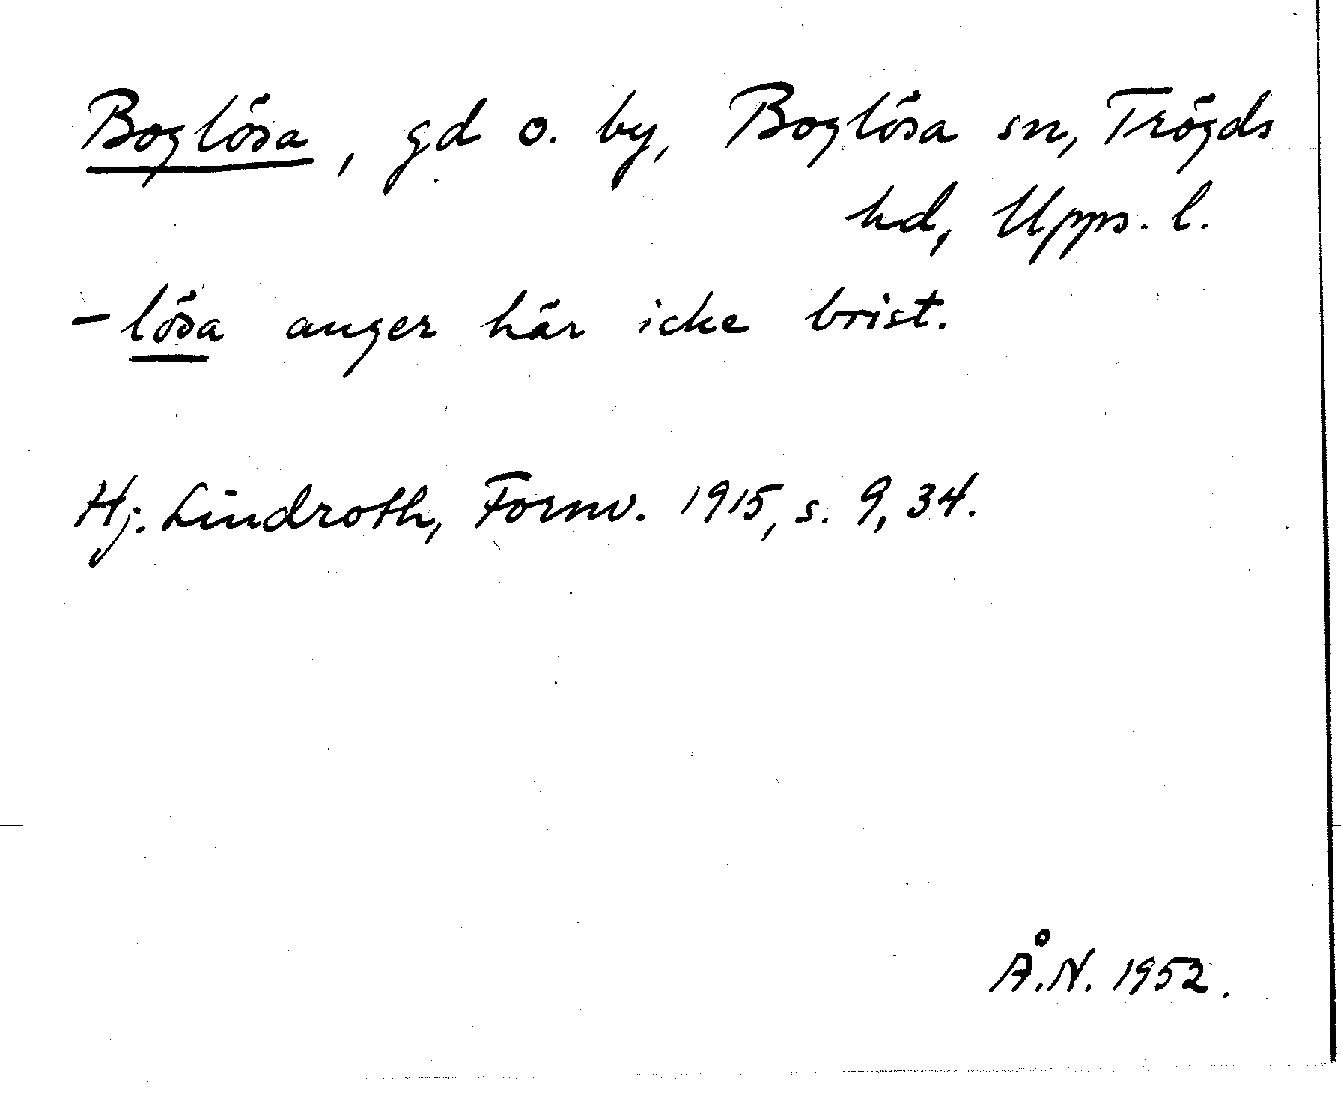 Boglösa, gd o. by, Boglösa sn, Trögds
hd, Upps. l.
-lösa anger här icke brist.
Hj. Lindroth, Fornv. 1915, s. 9, 34.
Å.N. 1952.